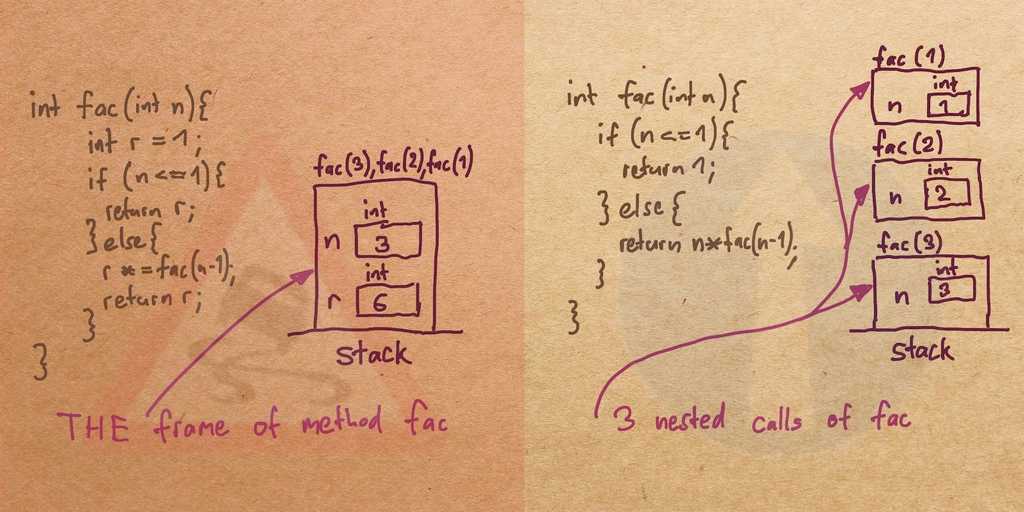 int fac(int n){
int r = 1;
if (n <= 1){
return r;
} else {
r *= fac(n-1);
return r;
}
}
fac(3), fac(2), fac(1)
int
n 3
int
r 6
stack
THE frame of method fac
int fac(int n){
if (n <= 1){
return 1;
} else {
return n*fac(n-1);
}
}
fac(1)
int
n 1
fac(2)
int
n 2
fac(3)
int
n 3
stack
3 nested calls of fac